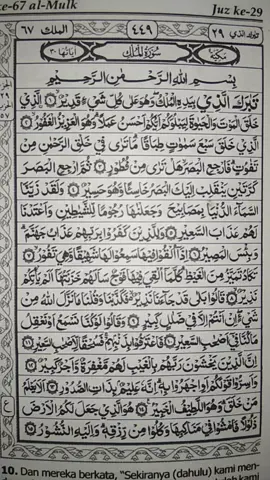 ke-67 al-Mulk
Juz ke-29
تبارك الذي ٢٩
٤٤٩
الملك ٦٧
مكية
سُورَةُ الْمُلْكِ
آياتها ٣٠
بِسْمِ اللّٰهِ الرَّحْمٰنِ الرَّحِيْمِ
تَبٰرَكَ الَّذِيْ بِيَدِهِ الْمُلْكُ وَهُوَ عَلٰى كُلِّ شَيْءٍ قَدِيْرٌ ١ الَّذِيْ
خَلَقَ الْمَوْتَ وَالْحَيٰوةَ لِيَبْلُوَكُمْ اَيُّكُمْ اَحْسَنُ عَمَلًا وَهُوَ الْعَزِيْزُ الْغَفُوْرُ ٢ الَّذِيْ
خَلَقَ سَبْعَ سَمٰوٰتٍ طِبَاقًا مَا تَرٰى فِيْ خَلْقِ الرَّحْمٰنِ مِنْ
تَفٰوُتٍ فَارْجِعِ الْبَصَرَ هَلْ تَرٰى مِنْ فُطُوْرٍ ٣ ثُمَّ ارْجِعِ الْبَصَرَ
كَرَّتَيْنِ يَنْقَلِبْ اِلَيْكَ الْبَصَرُ خَاسِئًا وَهُوَ حَسِيْرٌ ٤ وَلَقَدْ زَيَّنَّا
السَّمَاءَ الدُّنْيَا بِمَصَابِيْحَ وَجَعَلْنٰهَا رُجُوْمًا لِلشَّيٰطِيْنِ وَاَعْتَدْنَا
لَهُمْ عَذَابَ السَّعِيْرِ ٥ وَلِلَّذِيْنَ كَفَرُوْا بِرَبِّهِمْ عَذَابُ جَهَنَّمَ
وَبِئْسَ الْمَصِيْرُ ٦ اِذَا اُلْقُوْا فِيْهَا سَمِعُوْا لَهَا شَهِيْقًا وَهِيَ تَفُوْرُ ٧
تَكَادُ تَمَيَّزُ مِنَ الْغَيْظِ كُلَّمَا اُلْقِيَ فِيْهَا فَوْجٌ سَاَلَهُمْ خَزَنَتُهَا اَلَمْ يَأْتِكُمْ
نَذِيْرٌ ٨ قَالُوْا بَلٰى قَدْ جَاءَنَا نَذِيْرٌ فَكَذَّبْنَا وَقُلْنَا مَا نَزَّلَ اللّٰهُ مِنْ
شَيْءٍ اِنْ اَنْتُمْ اِلَّا فِيْ ضَلٰلٍ كَبِيْرٍ ٩ وَقَالُوْا لَوْ كُنَّا نَسْمَعُ اَوْ نَعْقِلُ
مَا كُنَّا فِيْ اَصْحٰبِ السَّعِيْرِ ١٠ فَاعْتَرَفُوْا بِذَنْبِهِمْ فَسُحْقًا لِاَصْحٰبِ السَّعِيْرِ ١١
اِنَّ الَّذِيْنَ يَخْشَوْنَ رَبَّهُمْ بِالْغَيْبِ لَهُمْ مَغْفِرَةٌ وَاَجْرٌ كَبِيْرٌ ١٢
وَاَسِرُّوْا قَوْلَكُمْ اَوِ اجْهَرُوْا بِهِ اِنَّهُ عَلِيْمٌ بِذَاتِ الصُّدُوْرِ ١٣ اَلَا يَعْلَمُ
مَنْ خَلَقَ وَهُوَ اللَّطِيْفُ الْخَبِيْرُ ١٤ هُوَ الَّذِيْ جَعَلَ لَكُمُ الْاَرْضَ
ذَلُوْلًا فَامْشُوْا فِيْ مَنَاكِبِهَا وَكُلُوْا مِنْ رِزْقِهِ وَاِلَيْهِ النُّشُوْرُ ١٥
10. Dan mereka berkata, "Sekiranya (dahulu) kami men-